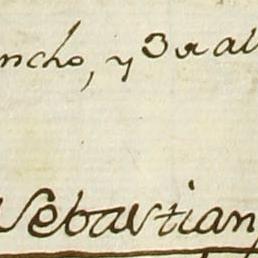 ncho, y 3 a al
Sebastian